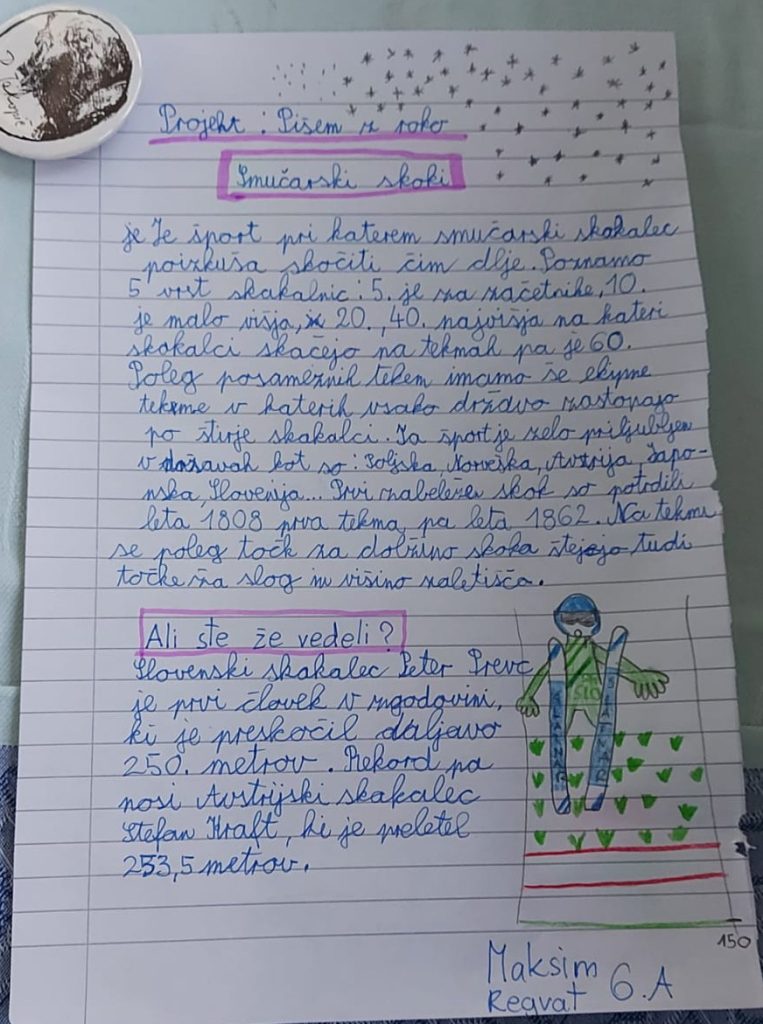 Projekt: Pišem z roko
Smučarski skoki
je Je šport pri katerem smučarski skakalec
poizkuša skočiti čim dlje. Poznamo
5 vrst skakalnic: 5. je za začetnike, 10.
je malo višja, 20., 40. najvišja na kateri
skakalci skačejo na tekmah pa je 60.
Poleg posameznih tekem imamo še ekipne
tekme v katerih vsako državo zastopajo
po štirje skakalci. Ta šport je zelo priljubljen
v državah kot so: Poljska, Norveška, Avstrija, Japo-
nska, Slovenija... Prvi zabeležen skok so potrdili
leta 1808 prva tekma, pa leta 1862. Na tekmi
se poleg točk za dolžino skoka štejejo tudi
točke za slog in višino zaletišča.
Ali ste že vedeli?
Slovenski skakalec Peter Prevc
je prvi človek v zgodovini,
ki je preskočil daljavo
250. metrov. Rekord pa
nosi Avstrijski skakalec
Stefan Kraft, ki je preletel
253,5 metrov.
SLO
SLATNAR
SLATNAR
150
Maksim
Regvat 6.A